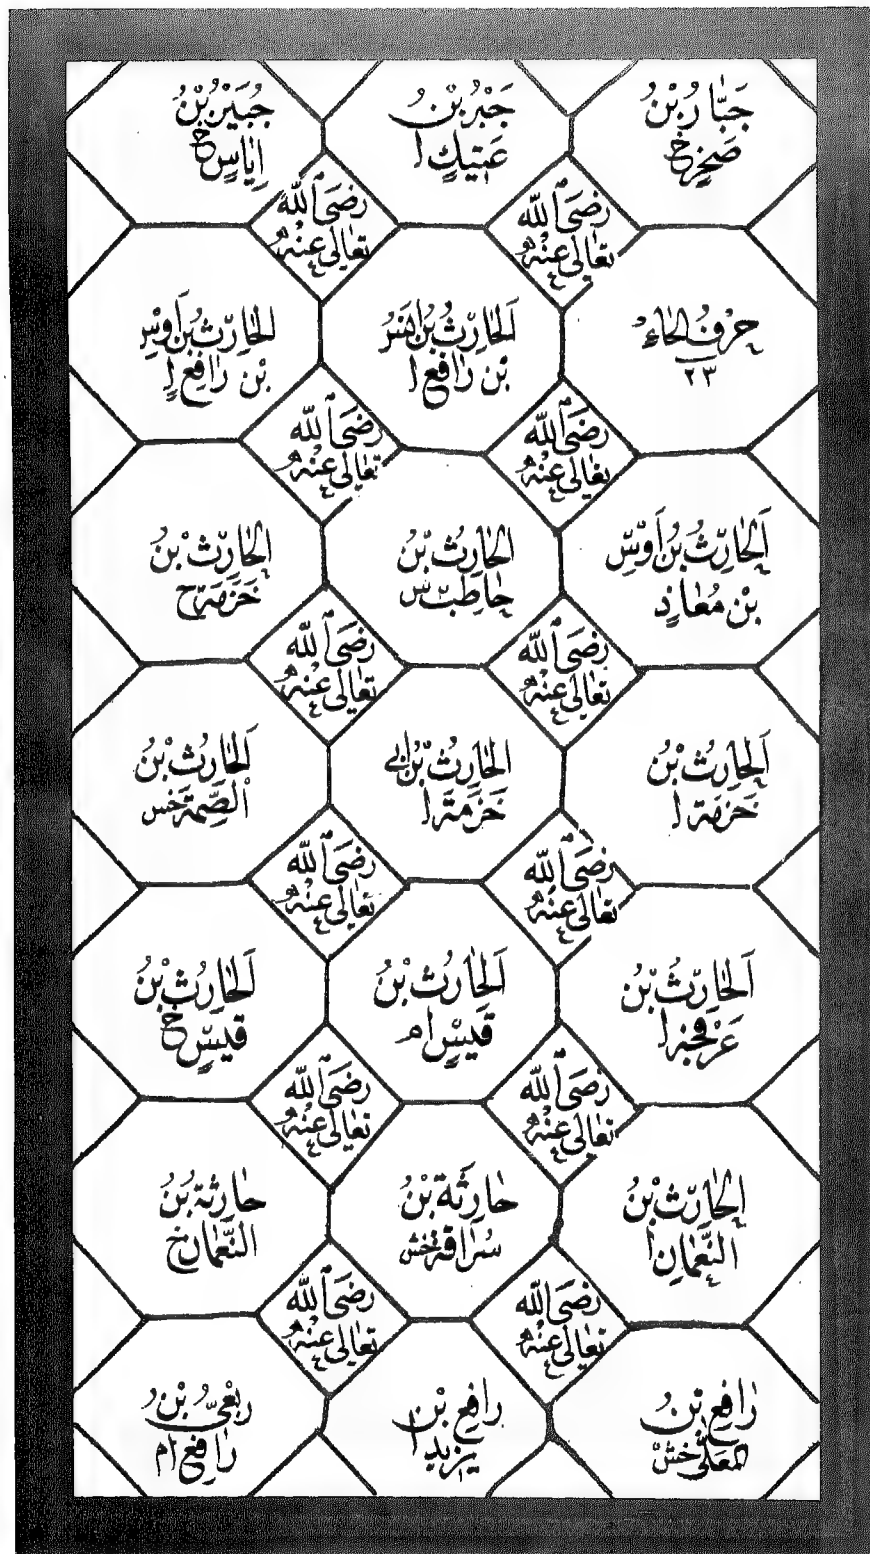 جَبَّارُ بْنُ
صَخْرٍ خ
جَبْرُ بْنُ
عَتِيكٍ ا
جُبَيْرُ بْنُ
اِيَاسٍ خ
رَضِيَ اللّٰه
تَعَالٰى عَنْهُ
رَضِيَ اللّٰه
تَعَالٰى عَنْهُ
حَرْفُ الْحَاءِ
٢٣
اَلْحَارِثُ بْنُ اَنَسُ
بْنِ رَافِعٍ ا
اَلْحَارِثُ بْنُ اَوْسِ
بْنِ رَافِعٍ ا
رَضِيَ اللّٰه
تَعَالٰى عَنْهُ
رَضِيَ اللّٰه
تَعَالٰى عَنْهُ
اَلْحَارِثُ بْنُ اَوْسِ
بْنِ مُعَاذٍ
اَلْحَارِثُ بْنُ
حَاطِبٍ
اَلْحَارِثُ بْنُ
خَزَمَة خ
رَضِيَ اللّٰه
تَعَالٰى عَنْهُ
رَضِيَ اللّٰه
تَعَالٰى عَنْهُ
اَلْحَارِثُ بْنُ
خَزَمَة ا
اَلْحَارِثُ بْنُ اَبِي
خَزَمَة ا
اَلْحَارِثُ بْنُ
الصِّمَّةِ خس
رَضِيَ اللّٰه
تَعَالٰى عَنْهُ
رَضِيَ اللّٰه
تَعَالٰى عَنْهُ
اَلْحَارِثُ بْنُ
عَرْفَجَة ا
اَلْحَارِثُ بْنُ
قَيْسٍ ام
اَلْحَارِثُ بْنُ
قَيْسٍ خ
رَضِيَ اللّٰه
تَعَالٰى عَنْهُ
رَضِيَ اللّٰه
تَعَالٰى عَنْهُ
اَلْحَارِثُ بْنُ
النُّعْمَانِ ا
حَارِثَةُ بْنُ
سُرَاقَة خش
حَارِثَةُ بْنُ
النُّعْمَانِ خ
رَضِيَ اللّٰه
تَعَالٰى عَنْهُ
رَضِيَ اللّٰه
تَعَالٰى عَنْهُ
رَافِعُ بْنُ
الْمُعَلّٰى خش
رَافِعُ بْنُ
يَزِيدَ ا
رِبْعِيُّ بْنُ
رَافِعٍ ام